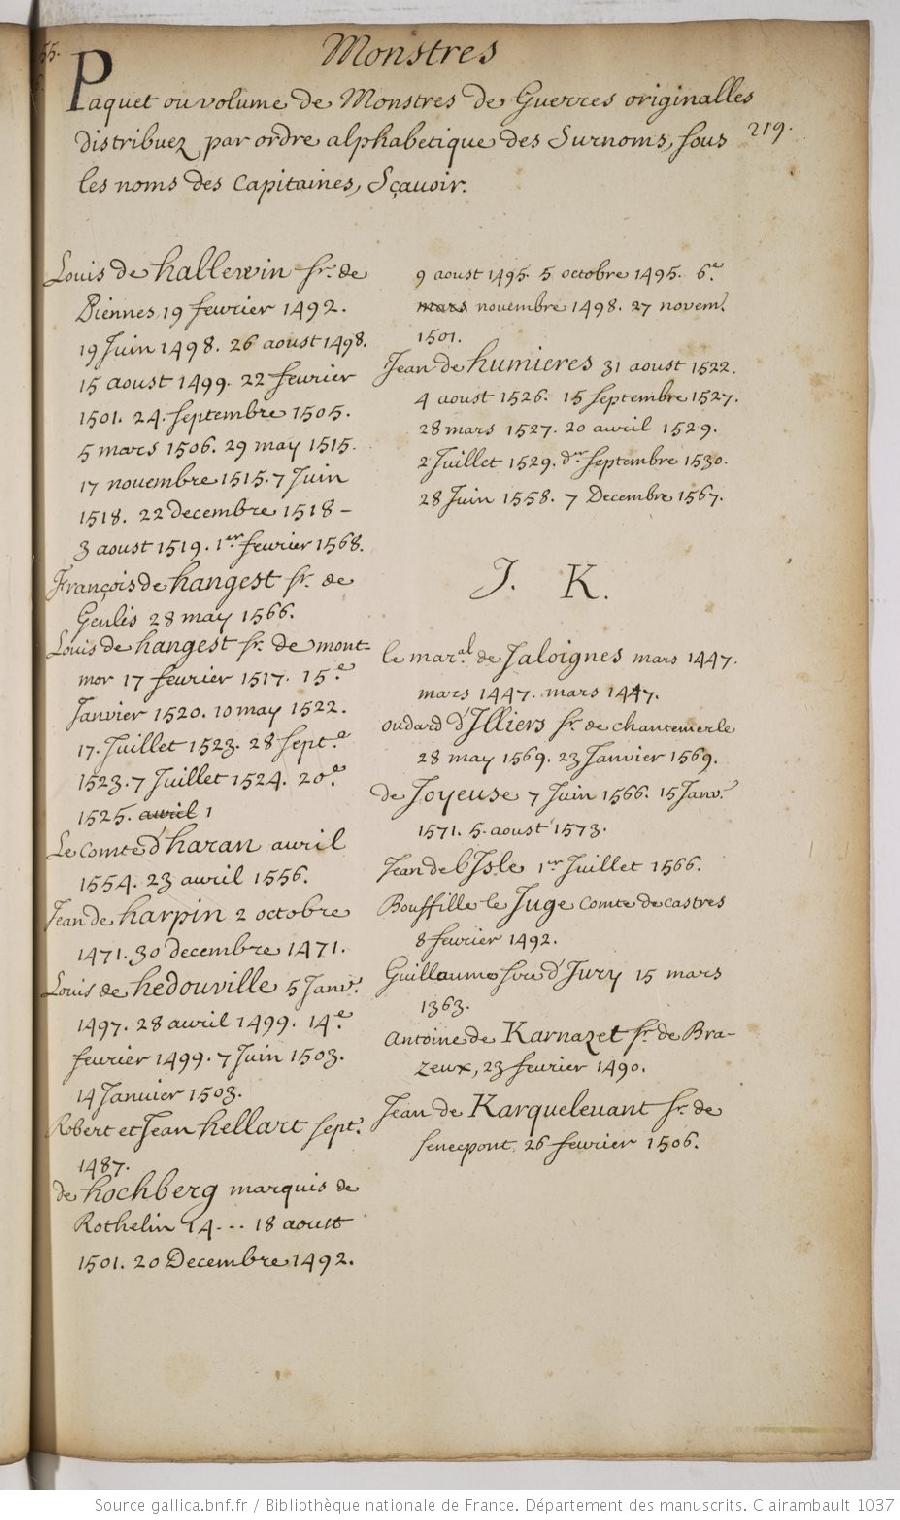 Monstres
Paquet ou volume de Monstres de Guerres originalles
distribuez par ordre alphabetique des Surnoms, sous
219.
les noms des Capitaines, Sçauoir.
Louis de hallewin sr. de
Piennes 19 feurier 1492.
19 Juin 1498. 26 aoust 1498.
15 aoust 1499. 22 feurier
1501. 24. septembre 1505.
5 mars 1506. 29 may 1515.
17 nouembre 1515. 7 Juin
1518. 22 decembre 1518 –
3 aoust 1519. 1er feurier 1568.
François de hangest sr. de
Genlis 28 may 1566.
Louis de hangest sr. de mont-
mor 17 feurier 1517. 15e
Janvier 1520. 10 may 1522.
17. Juillet 1523. 28 Sept.e
1523. 7 Juillet 1524. 20e
1525. auril 1
Le Comte d'haran auril
1554. 23 auril 1556.
Jean de harpin 2 octobre
1471. 30 decembre 1471.
Louis de hedouville 5 Janv.r
1497. 28 auril 1499. 14e
feurier 1499. 7 Juin 1503.
14 Janvier 1503.
Robert et Jean hellart sept.
1487.
de hochberg marquis de
Rothelin 14... 18 aoust
1501. 20 Decembre 1492.
9 aoust 1495. 5 octobre 1495. 6e
mars nouembre 1498. 27 novem.
1501.
Jean de humieres 31 aoust 1522.
4 aoust 1526. 15 septembre 1527.
28 mars 1527. 20 auril 1529.
2 Juillet 1529. dr septembre 1530.
28 Juin 1558. 7 Decembre 1567.
J. K.
le mar.al de Jaloignes mars 1447.
mars 1447. mars 1447.
oudard d'Illiers sr. de chantemerle
28 may 1569. 23 Janvier 1569.
de Joyeuse 7 Juin 1566. 15 Janv.r
1571. 5. aoust 1573.
Jean de l'Isle 1er Juillet 1566.
Bouffille le Juge Comte de castres
8 feurier 1492.
Guillaume sire d'Jury 15 mars
1363.
Antoine de Karnazet sr. de Bra-
zeux, 23 feurier 1490.
Jean de Karqueleuant sr. de
senecpont 26 feurier 1506.
Source gallica.bnf.fr / Bibliothèque nationale de France. Département des manuscrits. Clairambault 1037